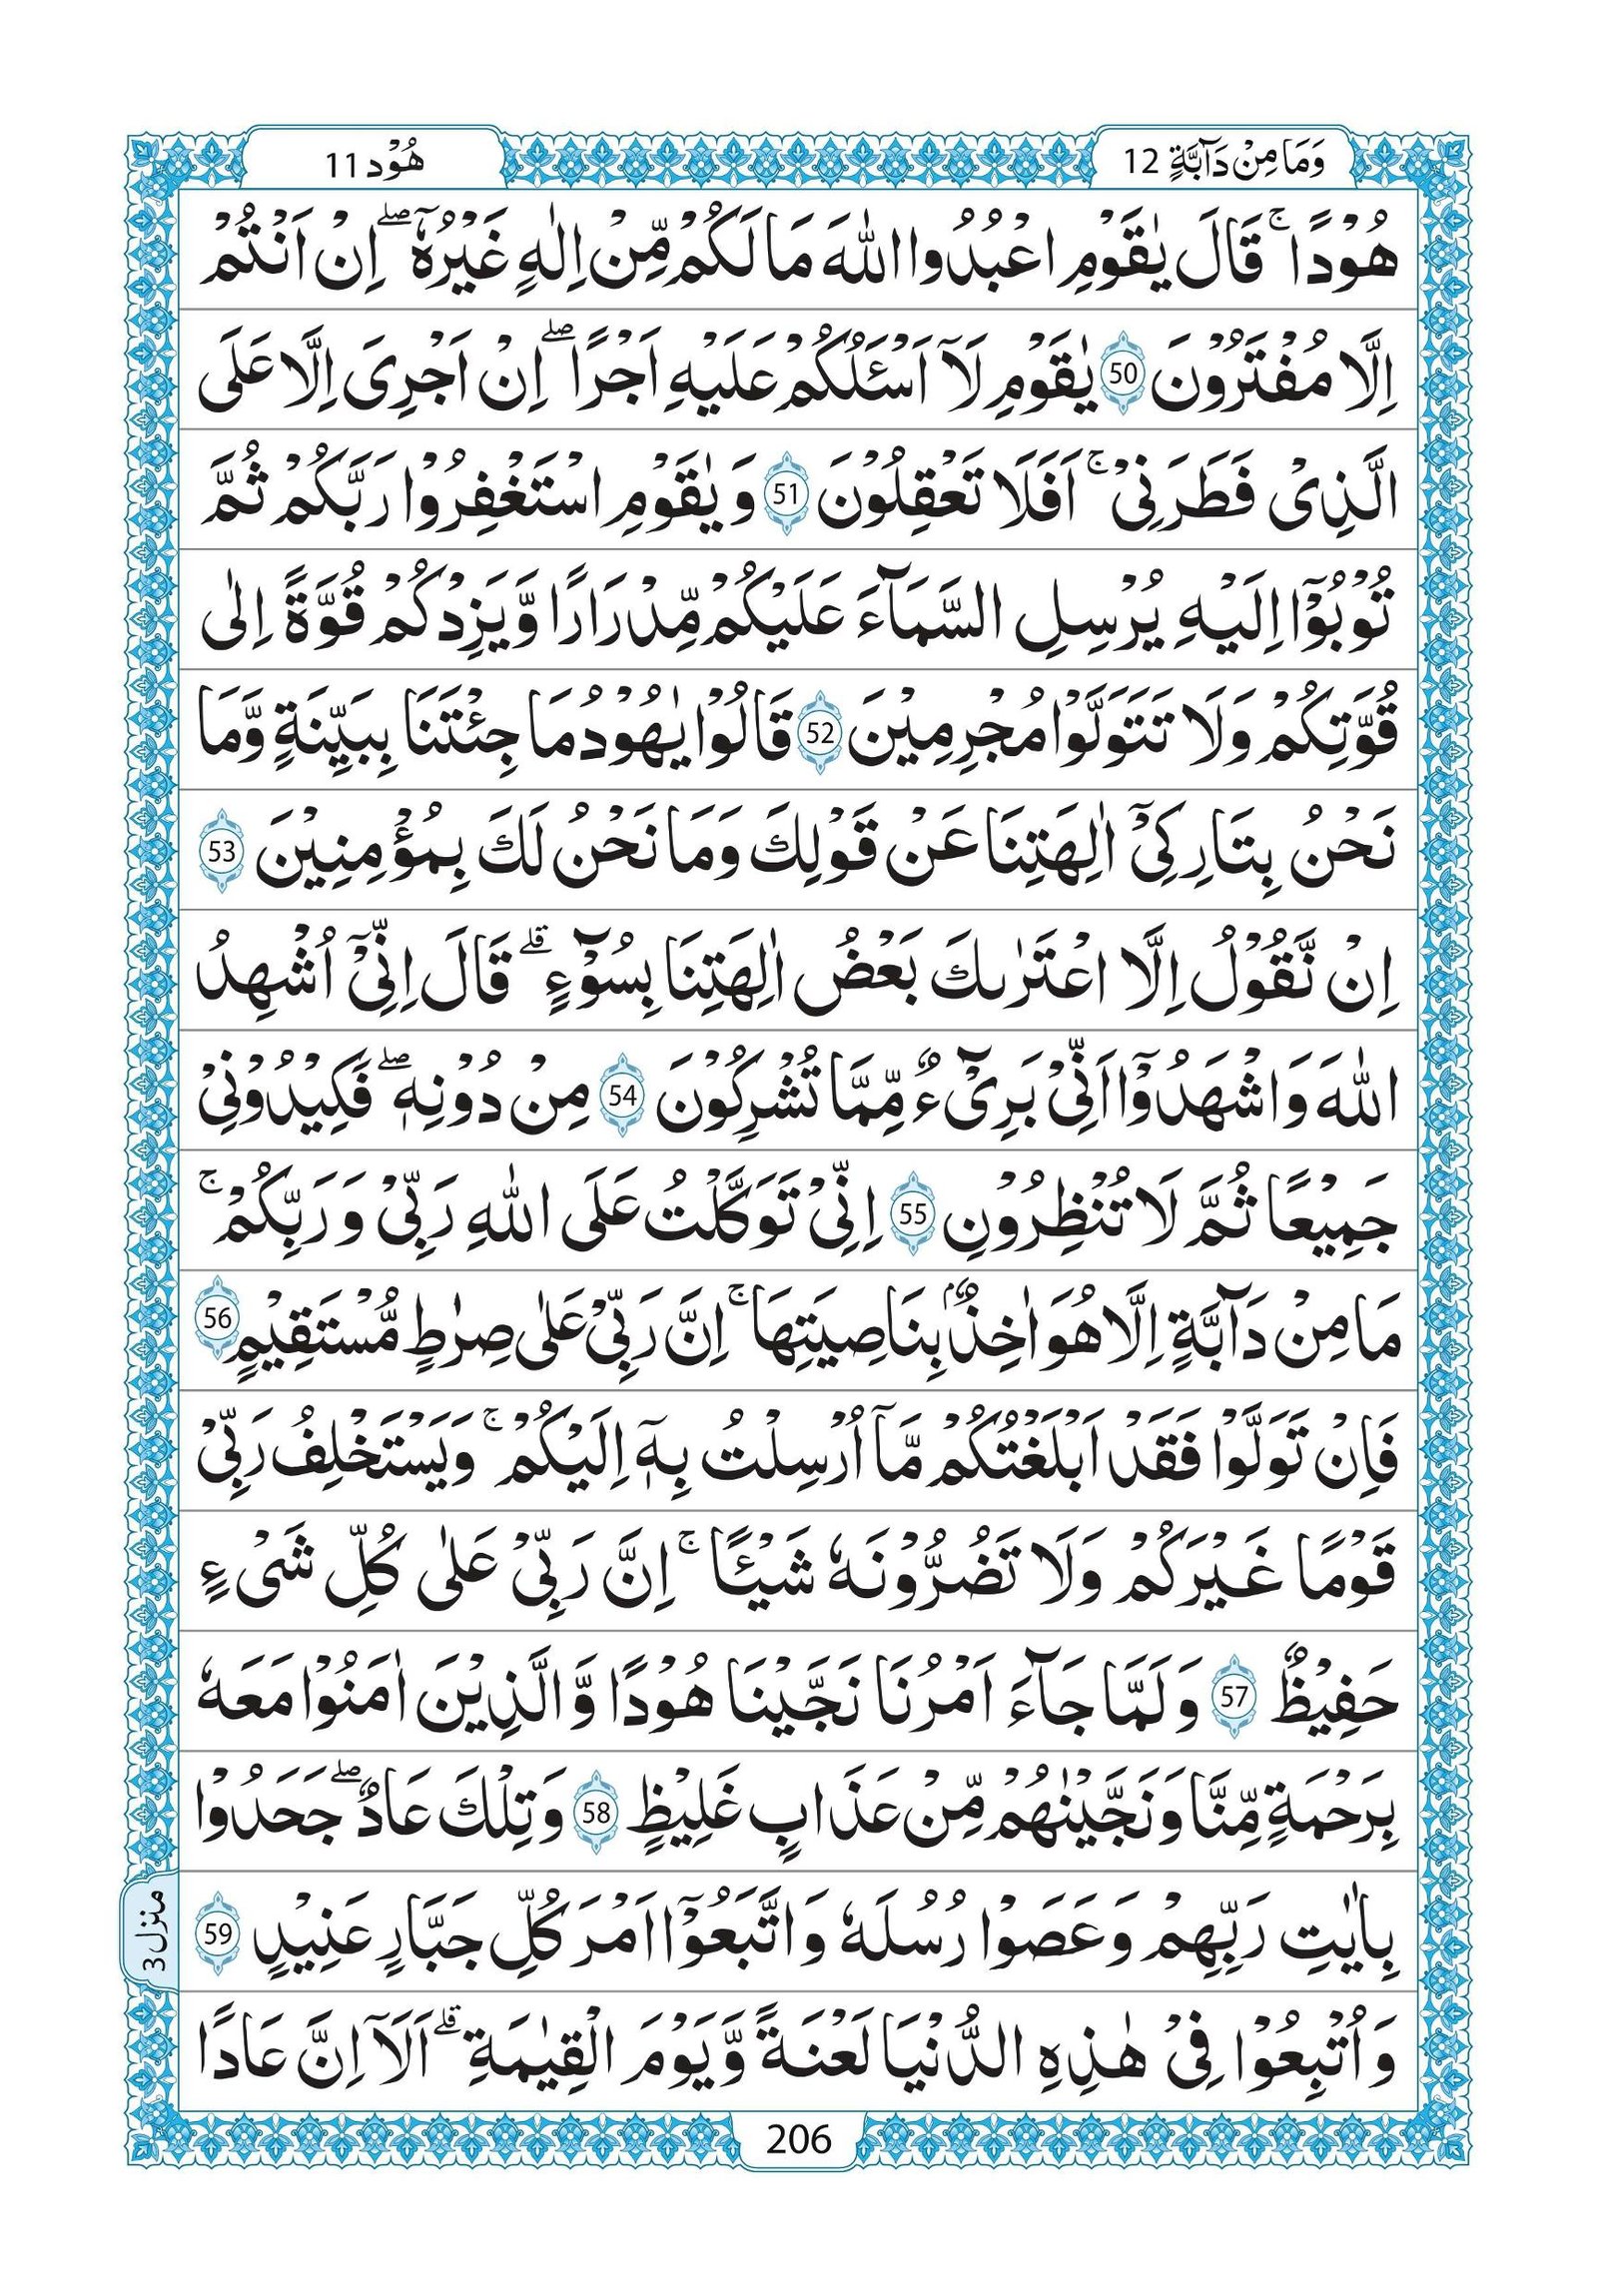 وَمَا مِنْ دَآبَّةٍ 12
هُوْد 11
هُوْدًا ۚ قَالَ يٰقَوْمِ اعْبُدُوا اللّٰهَ مَا لَكُمْ مِّنْ اِلٰهٍ غَيْرُهٗ ۖ اِنْ اَنْتُمْ
اِلَّا مُفْتَرُوْنَ 50 يٰقَوْمِ لَاۤ اَسْـَٔلُكُمْ عَلَيْهِ اَجْرًا ۖ اِنْ اَجْرِىَ اِلَّا عَلَى
الَّذِىْ فَطَرَنِىْ ۚ اَفَلَا تَعْقِلُوْنَ 51 وَ يٰقَوْمِ اسْتَغْفِرُوْا رَبَّكُمْ ثُمَّ
تُوْبُوْۤا اِلَيْهِ يُرْسِلِ السَّمَآءَ عَلَيْكُمْ مِّدْرَارًا وَّيَزِدْكُمْ قُوَّةً اِلٰى
قُوَّتِكُمْ وَلَا تَتَوَلَّوْا مُجْرِمِيْنَ 52 قَالُوْا يٰهُوْدُ مَا جِئْتَنَا بِبَيِّنَةٍ وَّمَا
نَحْنُ بِتَارِكِىْۤ اٰلِهَتِنَا عَنْ قَوْلِكَ وَمَا نَحْنُ لَكَ بِمُؤْمِنِيْنَ 53
اِنْ نَّقُوْلُ اِلَّا اعْتَرٰىكَ بَعْضُ اٰلِهَتِنَا بِسُوْٓءٍ ۗ قَالَ اِنِّىْۤ اُشْهِدُ
اللّٰهَ وَاشْهَدُوْۤا اَنِّىْ بَرِىْٓءٌ مِّمَّا تُشْرِكُوْنَ 54 مِنْ دُوْنِهٖ ۖ فَكِيْدُوْنِىْ
جَمِيْعًا ثُمَّ لَا تُنْظِرُوْنِ 55 اِنِّىْ تَوَكَّلْتُ عَلَى اللّٰهِ رَبِّىْ وَرَبِّكُمْ ۚ
مَا مِنْ دَآبَّةٍ اِلَّا هُوَ اٰخِذٌۢ بِنَاصِيَتِهَا ۚ اِنَّ رَبِّىْ عَلٰى صِرٰطٍ مُّسْتَقِيْمٍ 56
فَاِنْ تَوَلَّوْا فَقَدْ اَبْلَغْتُكُمْ مَّاۤ اُرْسِلْتُ بِهٖۤ اِلَيْكُمْ ۚ وَيَسْتَخْلِفُ رَبِّىْ
قَوْمًا غَيْرَكُمْ وَلَا تَضُرُّوْنَهٗ شَيْـًٔا ۚ اِنَّ رَبِّىْ عَلٰى كُلِّ شَىْءٍ
حَفِيْظٌ 57 وَلَمَّا جَآءَ اَمْرُنَا نَجَّيْنَا هُوْدًا وَّالَّذِيْنَ اٰمَنُوْا مَعَهٗ
بِرَحْمَةٍ مِّنَّا وَنَجَّيْنٰهُمْ مِّنْ عَذَابٍ غَلِيْظٍ 58 وَتِلْكَ عَادٌ ۖ جَحَدُوْا
بِاٰيٰتِ رَبِّهِمْ وَعَصَوْا رُسُلَهٗ وَاتَّبَعُوْۤا اَمْرَ كُلِّ جَبَّارٍ عَنِيْدٍ 59
وَاُتْبِعُوْا فِىْ هٰذِهِ الدُّنْيَا لَعْنَةً وَّيَوْمَ الْقِيٰمَةِ ۗ اَلَاۤ اِنَّ عَادًا
منزل 3
206